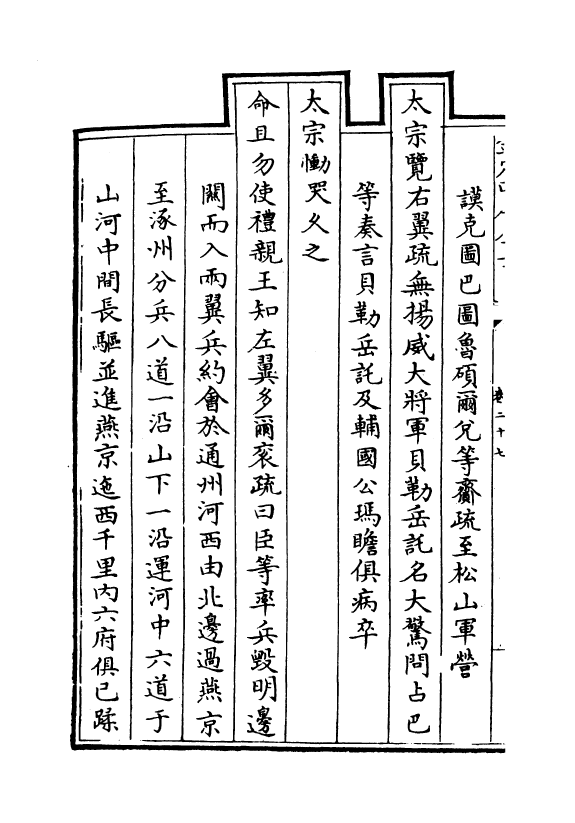 卷二十七
謨克圖巴圖魯碩爾兌等齎疏至松山軍營
太宗覽右翼疏無揚威大將軍貝勒岳託名大驚問占巴
等奏言貝勒岳託及輔國公瑪瞻俱病卒
太宗慟哭久之
命且勿使禮親王知左翼多爾衮疏曰臣等率兵毀明邊
關而入兩翼兵約會於通州河西由北邊過燕京
至涿州分兵八道一沿山下一沿運河中六道于
山河中間長驅並進燕京迤西千里內六府俱已蹂